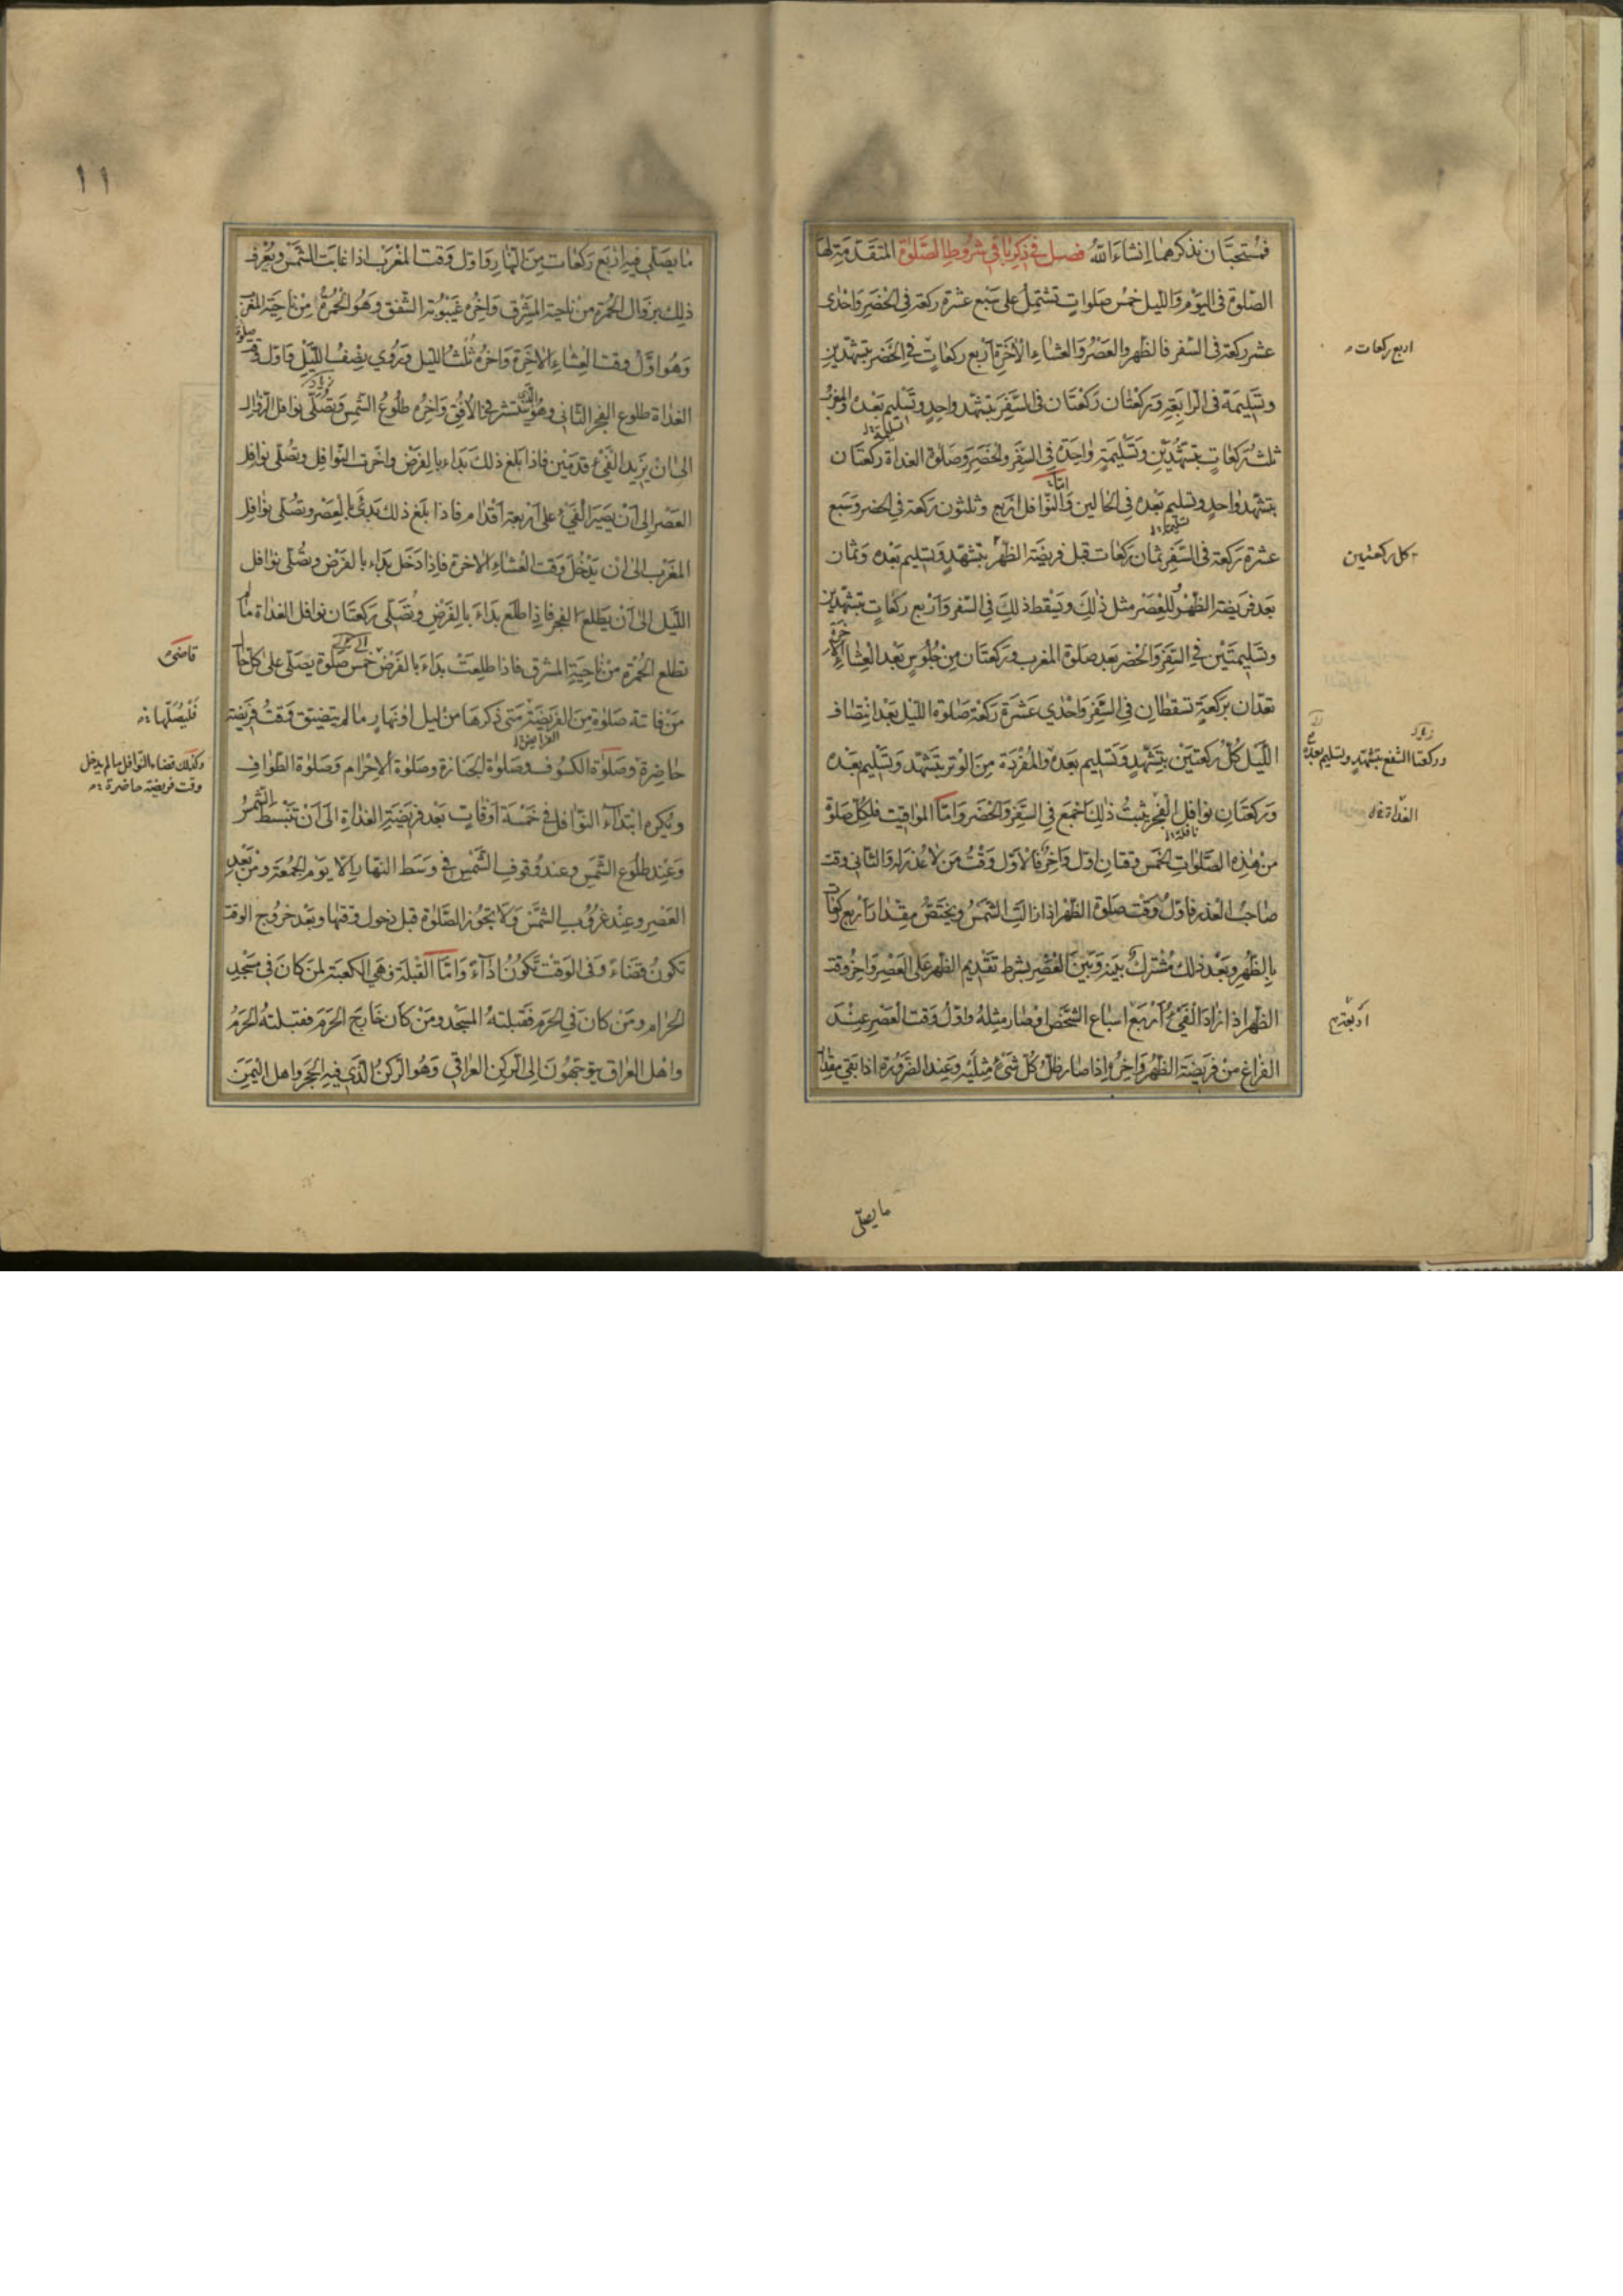 فمستحبان نذكرهما انشاء الله فصل في ذكر باقي شروط الصلوة المتقدمة لها
الصلوة في اليوم والليل خمس صلوات تشتمل على سبع عشرة ركعة في الحضر واحدى
عشر ركعة في السفر فالظهر والعصر والعشاء الاخرة اربع ركعات في الحضر بتشهدين
وتسليمة في الرابعة وركعتان ركعتان في السفر بتشهد واحد وتسليم بعده والمغرب
ثلث ركعات بتشهدين وتسليمة واحدة في السفر والحضر وصلوة الغداة ركعتان
بتشهد واحد وتسليم بعده في الحالين واما النوافل اربع وثلثون ركعة في الحضر وسبع
عشرة ركعة في السفر ثمان ركعات قبل فريضة الظهر بتشهد وتسليم بعده وثمان
بعد فريضة الظهر للعصر مثل ذلك ويسقط ذلك في السفر واربع ركعات بتشهدين
وتسليمتين في السفر والحضر بعد صلوة المغرب وركعتان من جلوس بعد العشاء الاخرة
تعدان بركعة تسقطان في السفر واحدي عشرة ركعة صلوة الليل بعد انتصاف
الليل كل ركعتين بتشهد وتسليم بعده والمفردة من الوتر بتشهد وتسليم بعده
وركعتان نوافل الفجر يثبت ذلك اجمع في السفر والحضر واما المواقيت فلكل صلوة
من هذه الصلوات الخمس وقتان اول واخر فالاول وقت من لا عذر له والثاني وقت
صاحب العذر فاول وقت صلوة الظهر اذا زالت الشمس ويختص مقدار اربع ركعات
بالظهر وبعد ذلك مشترك بينه وبين العصر بشرط تقديم الظهر على العصر واخر وقت
الظهر اذا زاد الفيء اربع اسباع الشخص او صار مثله واول وقت العصر عند
الفراغ من فريضة الظهر واخره اذا صار ظل كل شيء مثليه وعند الضرورة اذا بقي مقدار
اربع ركعات
كل ركعتين
وركعتا الشفع بتشهد وتسليم بعده
الغداة
ما يصلى
١١
ما يصلى فيه اربع ركعات من النهار واول وقت المغرب اذا غابت الشمس ويعرف
ذلك بزوال الحمرة من ناحية المشرق واخره غيبوبة الشفق وهو الحمرة من ناحية المغرب
وهو اول وقت العشاء الاخرة واخره ثلث الليل وروي نصف الليل واول وقت صلوة
الغداة طلوع الفجر الثاني وهو الذي ينتشر في الافق واخره طلوع الشمس وتصلى نوافل الزوال
الى ان يزيد الفيء قدمين فاذا بلغ ذلك بداء بالفرض واخرت النوافل وتصلى نوافل
العصر الى ان يصير الفيء على اربعة اقدام فاذا بلغ ذلك بدئ بالعصر وتصلى نوافل
المغرب الى ان يدخل وقت العشاء الاخرة فاذا دخل بداء بالفرض وتصلى نوافل
الليل الى ان يطلع الفجر فاذا طلع بداء بالفرض وتصلى ركعتان نوافل الغداة ما لم
تطلع الحمرة من ناحية المشرق فاذا طلعت بداء بالفرض خمس صلوة يصلى على كل حال
من فاتته صلوة من الفريضة متى ذكرها من ليل او نهار ما لم يتضيق وقت فريضة
حاضرة وصلوة الكسوف وصلوة الجنازة وصلوة الاحرام وصلوة الطواف
ويكره ابتداء النوافل في خمسة اوقات بعد فريضة الغداة الى ان تنبسط الشمس
وعند طلوع الشمس وعند وقوف الشمس في وسط النهار الا يوم الجمعة ومن بعد
العصر وعند غروب الشمس ولا يجوز الصلوة قبل دخول وقتها وبعد خروج الوقت
تكون قضاء وفي الوقت تكون اداء واما القبلة فهي الكعبة لمن كان في مسجد
الحرام ومن كان في الحرم فقبلته المسجد ومن كان خارج الحرم فقبلته الحرم
واهل العراق يتوجهون الى الركن العراقي وهو الركن الذي فيه الحجر واهل اليمن
فليصلها
وكذلك قضاء النوافل ما لم يدخل
وقت فريضة حاضرة